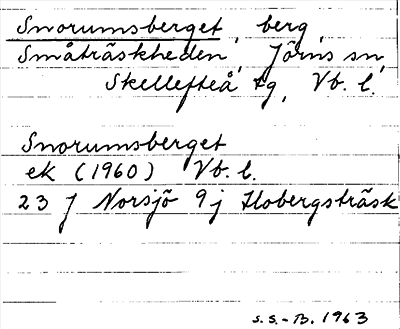 Snorumsberget, berg,
Småträskheden, Jörns sn,
Skellefteå tg, Vb. l.
Snorumsberget
ek (1960) Vb. l.
23 J Norsjö 9j Flobergsträsk
S.S.-B. 1963